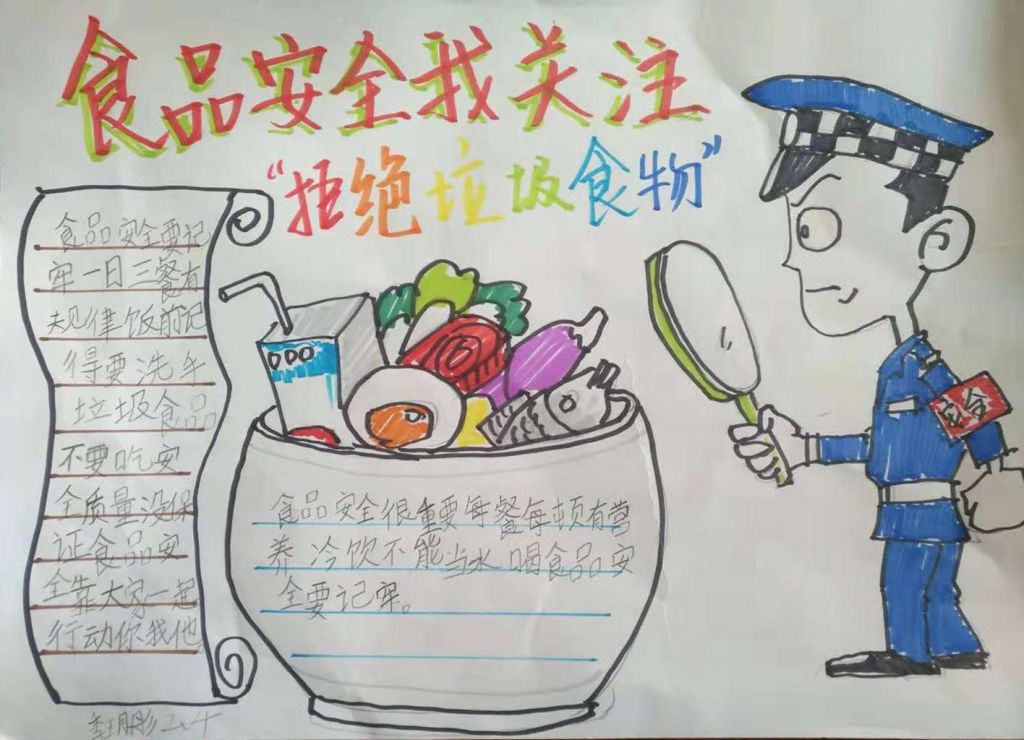 食品安全我关注
“拒绝垃圾食物”
食品安全要记
牢一日三餐有
规律饭前记
得要洗手
垃圾食品
不要吃安
全质量没保
证食品安
全靠大家一起
行动你我他
食品安全很重要每餐每顿有营
养冷饮不能当水喝食品安
全要记牢。
安全
2.4